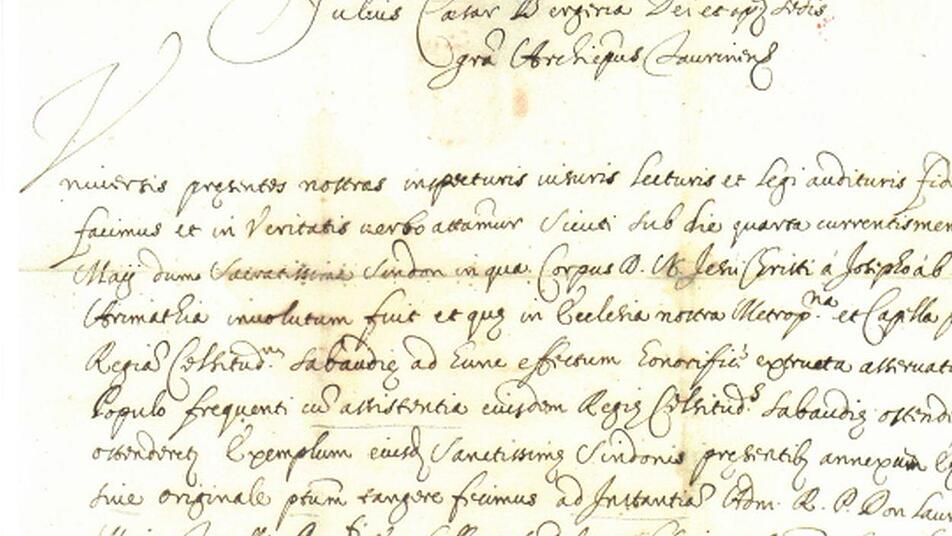 Julius Cæsar Bergeria Dei et ap. sedis
gra Archiepus Taurinens
Universis presentes nostras inspecturis visuris lecturis et legi audituris fid
facimus et in Veritatis verbo attamur Sicuti sub die quarta currentis men
Maij dum Sacratissima Sindon in qua Corpus D. N. Jesu Christi à Josepho ab
Arimathia involutum fuit et quę in Ecclesia nostra Metrop.na et Capella
Regiae Celsitud.nis Sabaudię ad hunc effectum honorifice extructa asservat
Populo frequenti cum assistentia eiusdem Regię Celsitud.s Sabaudię ostend
ostenderetur Exemplum eiusd Sanctissimę Sindonis presentibus annexum
sive originale ptum tangere fecimus ad Instantia Adm. R. P. Don Laur